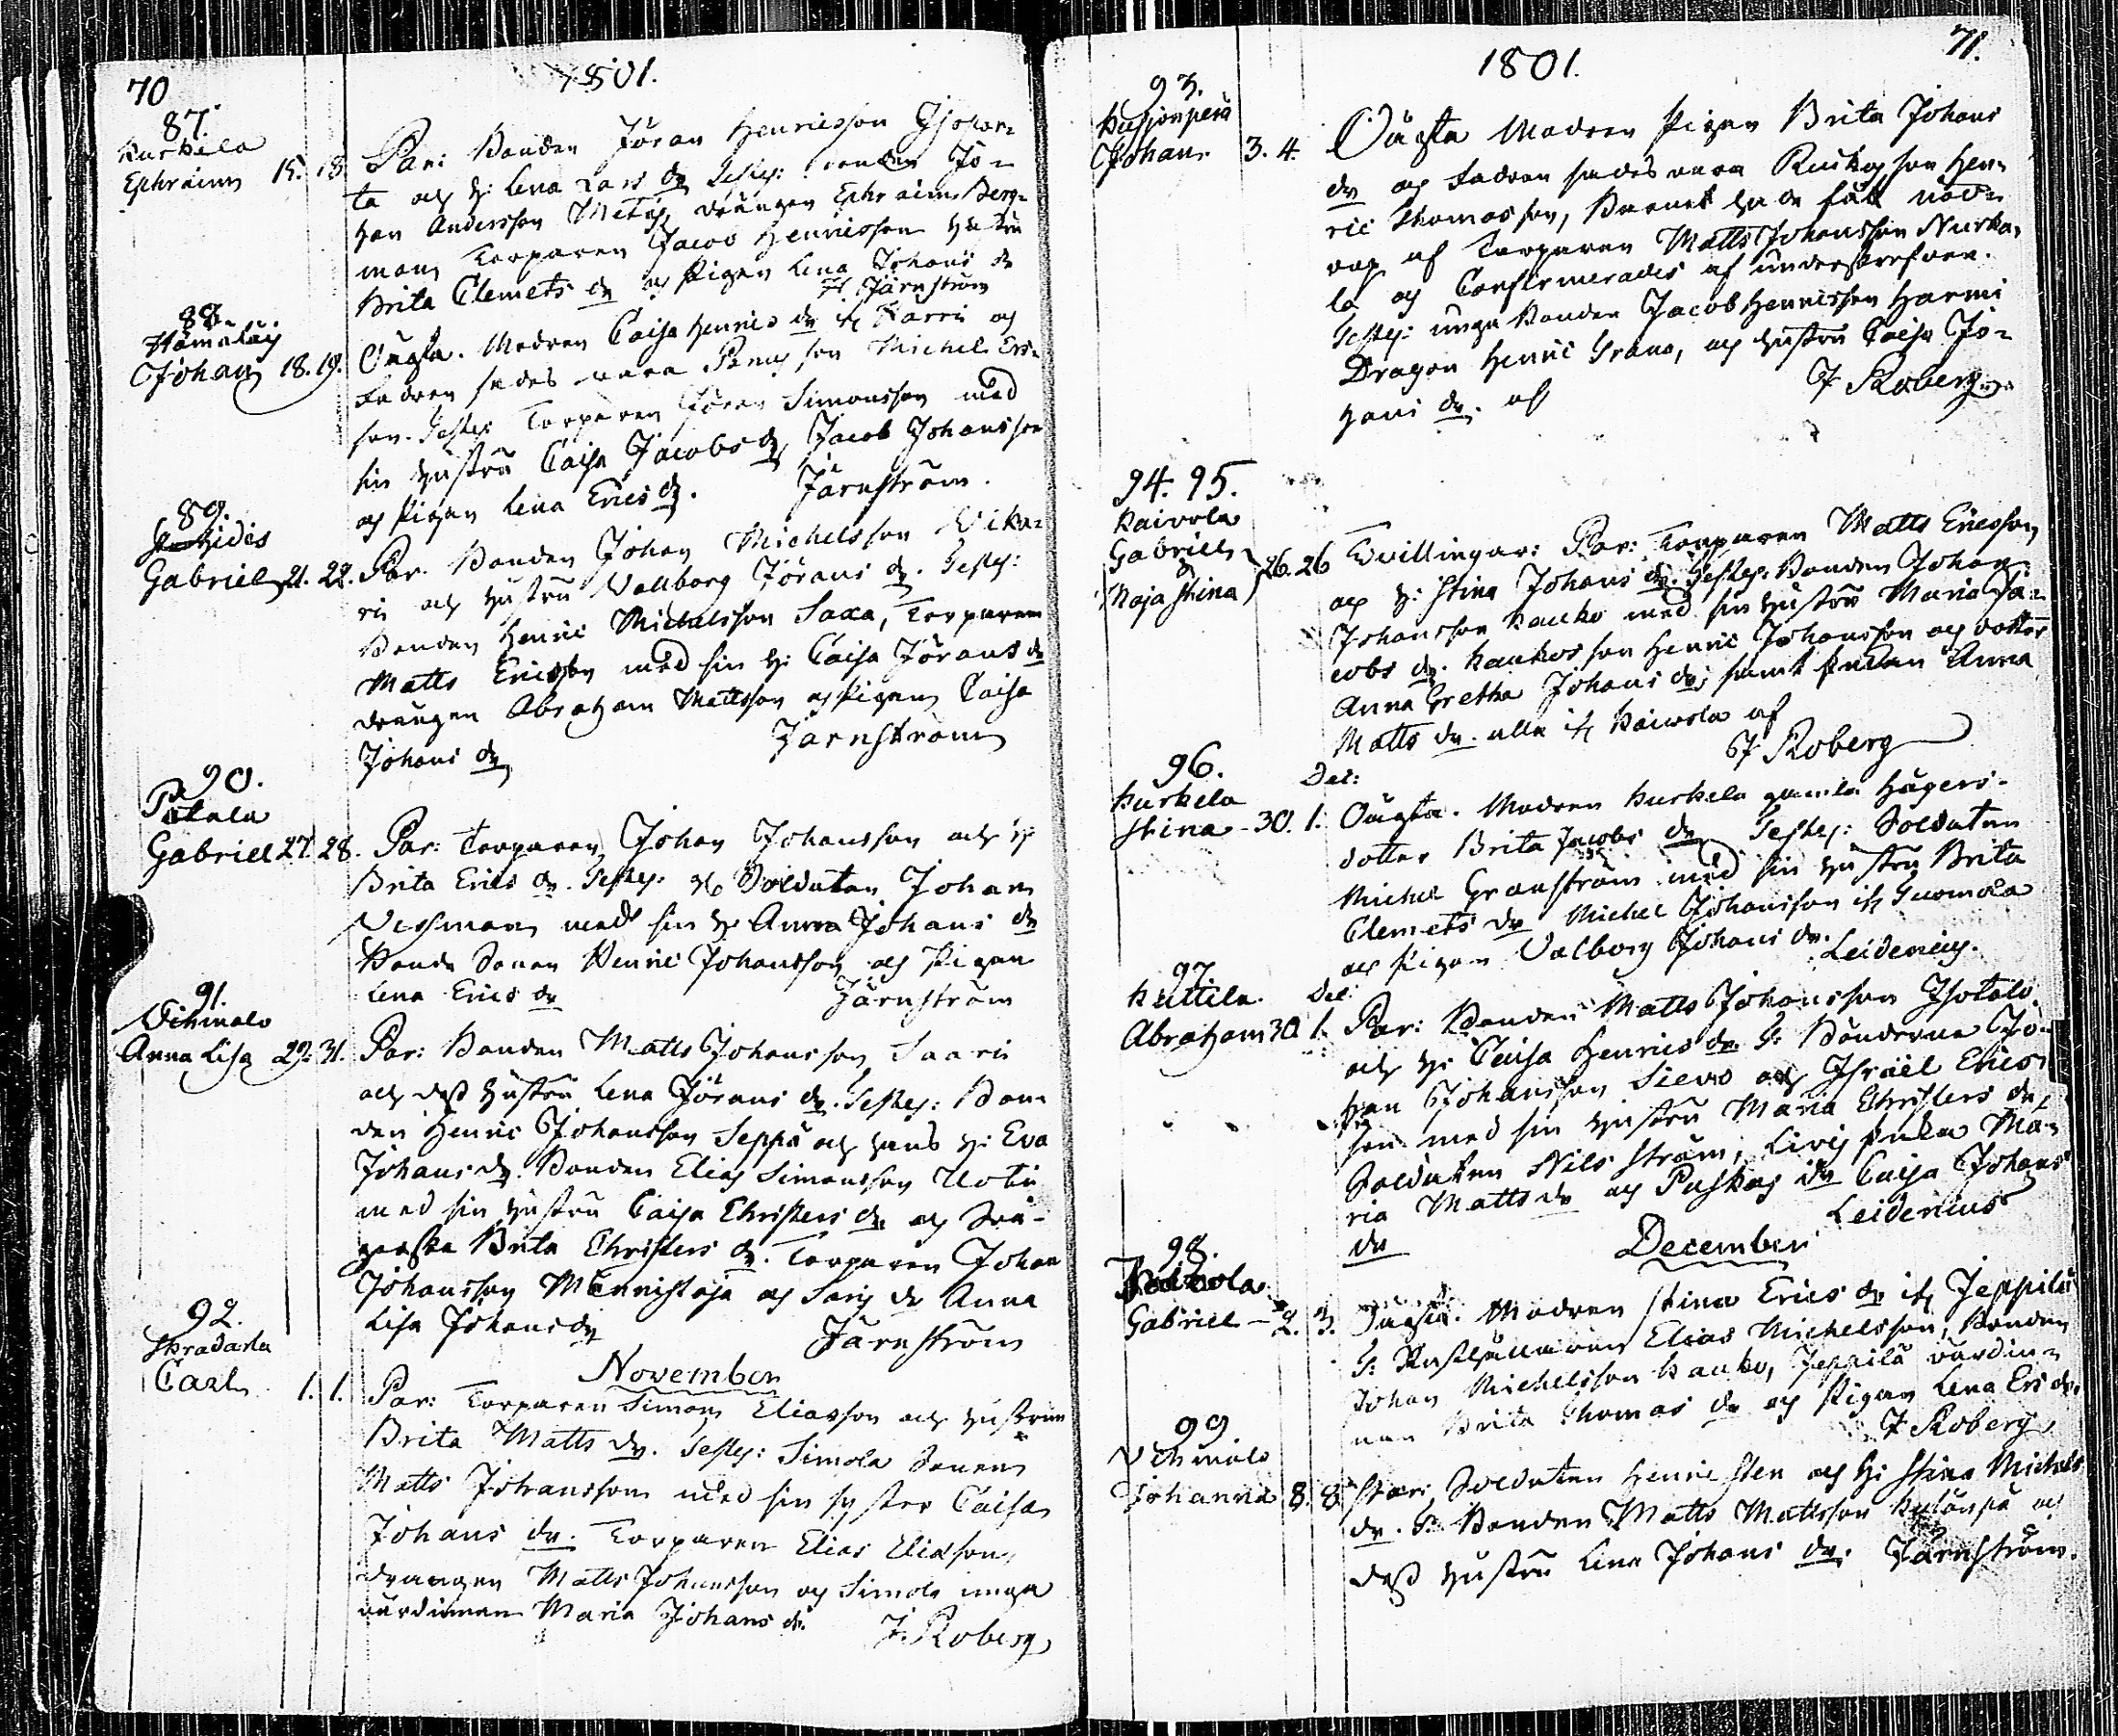 70
1801.
87.
Kurkela
Ephraim 15. 18. Par: Bonden Jöran Henricsson Isotor-
ta och H: Lena Lars dr Testes: Bonden Jo-
han Andersson Drängen Ephraim Berg-
man, Torparen Jacob Henricsson Hustru
Brita Clemets dr och Pigan Lena Johans dr
J Järnström
88.
Hämälä
Johan 18. 19. Oägta. Modren Caisa Henrics dr
Fadren sades vara son Michel Ers-
son. Testes Torparen Jöran Simonsson med
sin hustru Caisa Jacobs dr, Jacob Johansson
och Pigan Lena Erics dr. Järnström.
89.
Gabriel 21. 22. Par. Bonden Johan Michelsson
och hustru Vallborg Jörans dr. Testes:
Bonden Henric Michelsson Saxa, Torparen
Matts Ericsson med sin H: Caisa Jörans dr
drängen Abraham Mattsson och Pigan Caisa
Johans dr Järnström
90.
Pitala
Gabriel 27. 28. Par: Torparen Johan Johansson och H
Brita Erics dr. Testes: Soldaten Johan
Vessman med sin H: Anna Johans dr
Bonde Sonen Henric Johansson och Pigan
Lena Erics dr Järnström
91.
Vihmalo
Anna Lisa 29. 31. Par: Bonden Matts Johansson Saari
och dess hustru Lena Jörans dr. Testes: Bon-
den Henric Johansson Seppä och hans H: Eva
Johans dr. Bonden Elias Simonsson Uoti
med sin hustru Caisa Christers dr och
Brita Christers dr. Torparen Johan
Johansson Mannistöja och dr Anna
Lisa Johans dr Järnström
November
92.
Skradarla
Carl 1. 1. Par: Torparen Simon Eliasson och hustrun
Brita Matts dr. Testes: Simola Sonen
Matts Johansson med sin syster Caisa
Johans dr. Torparen Elias Eliasson,
drängen Matts Johansson och Simola unga
värdinnan Maria Johans dr. J. Roberg
71.
1801.
93.
Johan 3. 4. Oägta Modren Pigan Brita Johans
dr och Fadren sades vara son Hen-
ric Thomasson, Barnet hade fått nöd-
dop af Torparen Matts Johansson Nurka-
la och Confirmerades af underskrefven.
Testes: unga Bonden Jacob Henricsson Harmi
Dragon Henric Grano, och hustru Caisa Jo-
hans dr. af J Roberg
94. 95.
Kaivola
Gabriel
&
Maja Stina 26. 26 Tvillingar: Par: Torparen Matts Ericsson,
och H: Stina Johans dr. Testes: Bonden Johan
Johansson Kauko med sin hustru Maria Ja-
cobs dr. Kaukos son Henric Johansson och dotter
Anna Gretha Johans dr, samt Anna
Matts dr. alla if Kaivola af
J Roberg
96. Dec:
Kurkela
Stina - 30. 1. Oägta. Modren Kurkela gamla
dotter Brita Jacobs dr Testes: Soldaten
Michel Granström med sin hustru Brita
Clemets dr Michel Johansson if Suomela
och Pigan Valborg Johans dr. Leidenius.
97. Dec:
Kuttila
Abraham 30. 1. Par: Bonden Matts Johansson Isotalo
och H: Caisa Henrics dr T: Bönderna Jo-
han Johansson Sievo och Israel Erics-
son med sin hustru Maria Christers dr,
Soldaten Nils Ström, Ma-
ria Matts dr och dr Caisa Johans
dr Leidenius
December
98.
Gabriel - 2. 3. Oägta. Modren Stina Erics dr if Jeppilä
T: Rusthållaren Elias Michelsson, Bonden
Johan Michelsson Kauko, Jeppilä värdin-
nan Brita Thomas dr och Pigan Lena Ers dr.
J Roberg
99
Vihmalo
Johanna 8. 8. Par: Soldaten Henric Sten och H: Stina Michels
dr. T: Bonden Matts Mattsson och
dess hustru Lena Johans dr. Järnström.